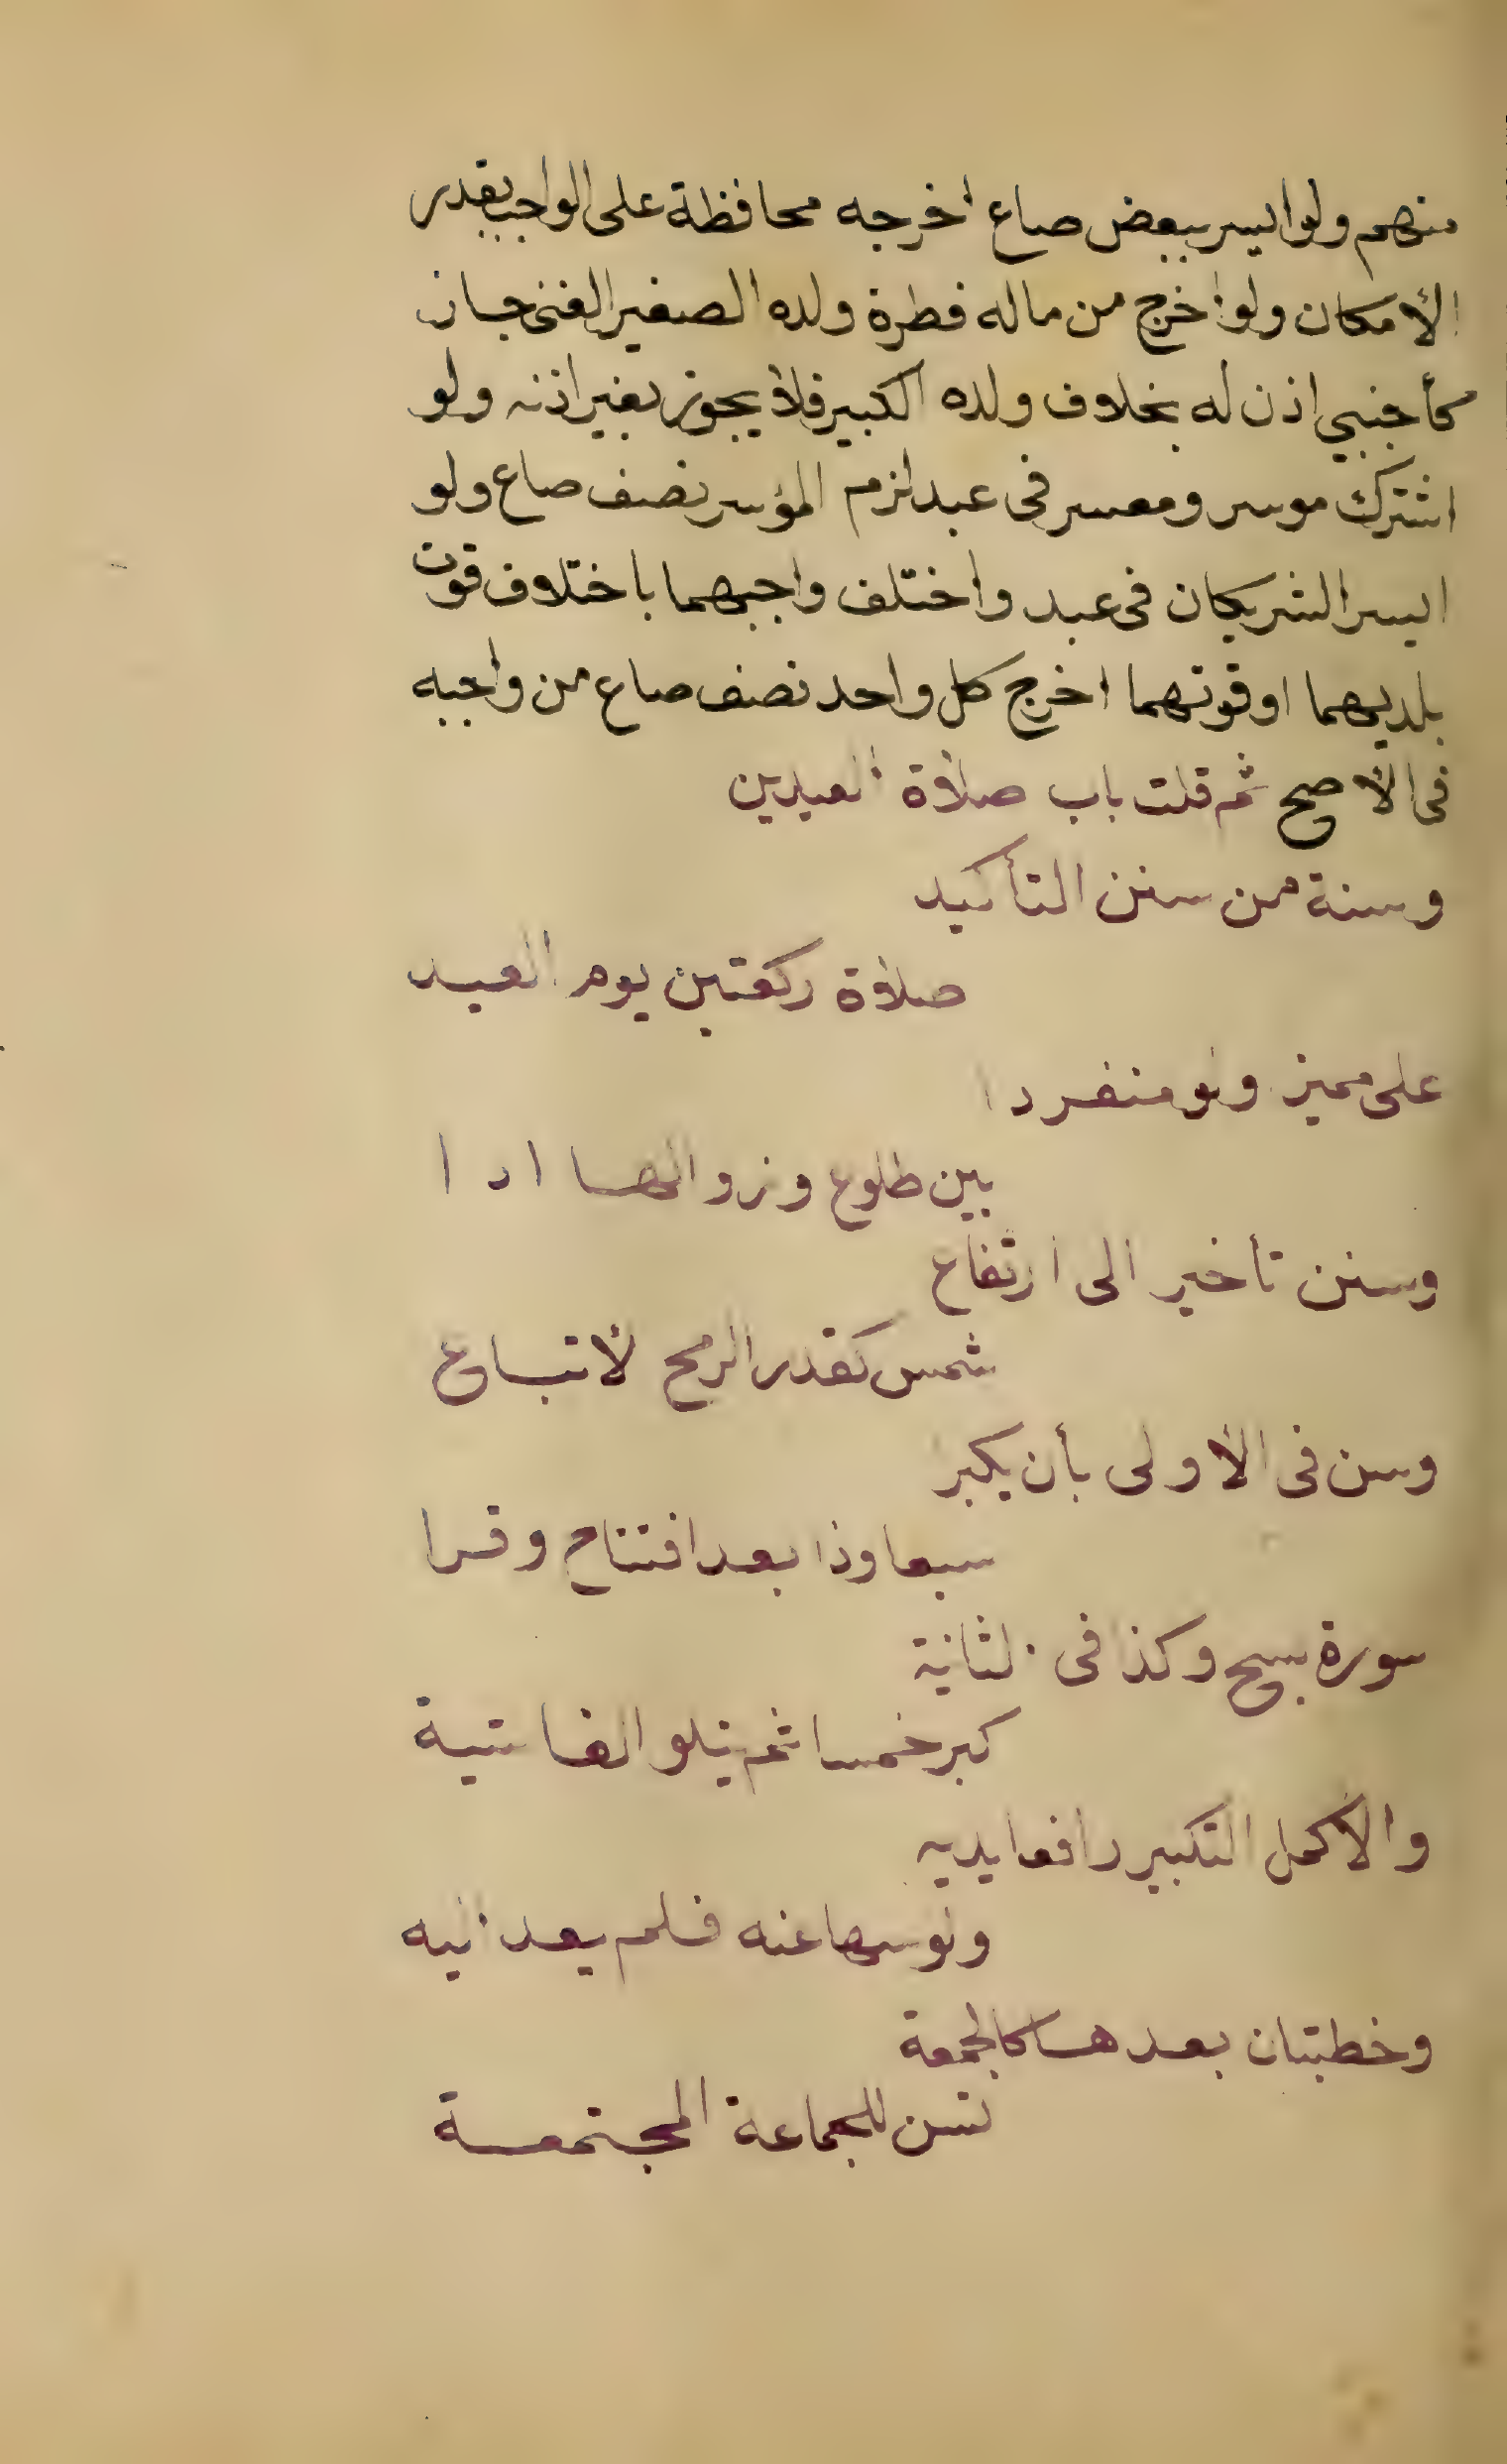 منهم ولو ايسر ببعض صاع اخرجه محافظة على الواجب بقدر
الأمكان ولو اخرج من ماله فطرة ولده الصغير الغنى جاز
كأجنبي اذن له بخلاف ولده الكبير فلا يجوز بغير اذنه ولو
اشترك موسر ومعسر فى عبد لزم المؤسر نصف صاع ولو
ايسر الشريكان فى عبد واختلف واجبهما باختلاف قوت
بلديهما او قوتهما اخرج كل واحد نصف صاع من واجبه
فى الأصح ثم قلت باب صلاة العيدين
وسنة من سنن التأكيد
صلاة ركعتين يوم العيد
على مميز ولو منفردا
بين طلوع وزوالها ادا
وسنن تأخير الى ارتفاع
شمس كقدر الرمح لأتباع
وسن فى الأولى بأن يكبر
سبعا وذا بعد افتتاح وقرا
سورة سبح وكذا فى الثانية
كبر خمسا ثم يتلو الغاشية
والأكمل التكبير رافعا يديه
ولو سها عنه فلم يعد اليه
وخطبتان بعدها كالجمعة
تسن للجماعة المجتمعة